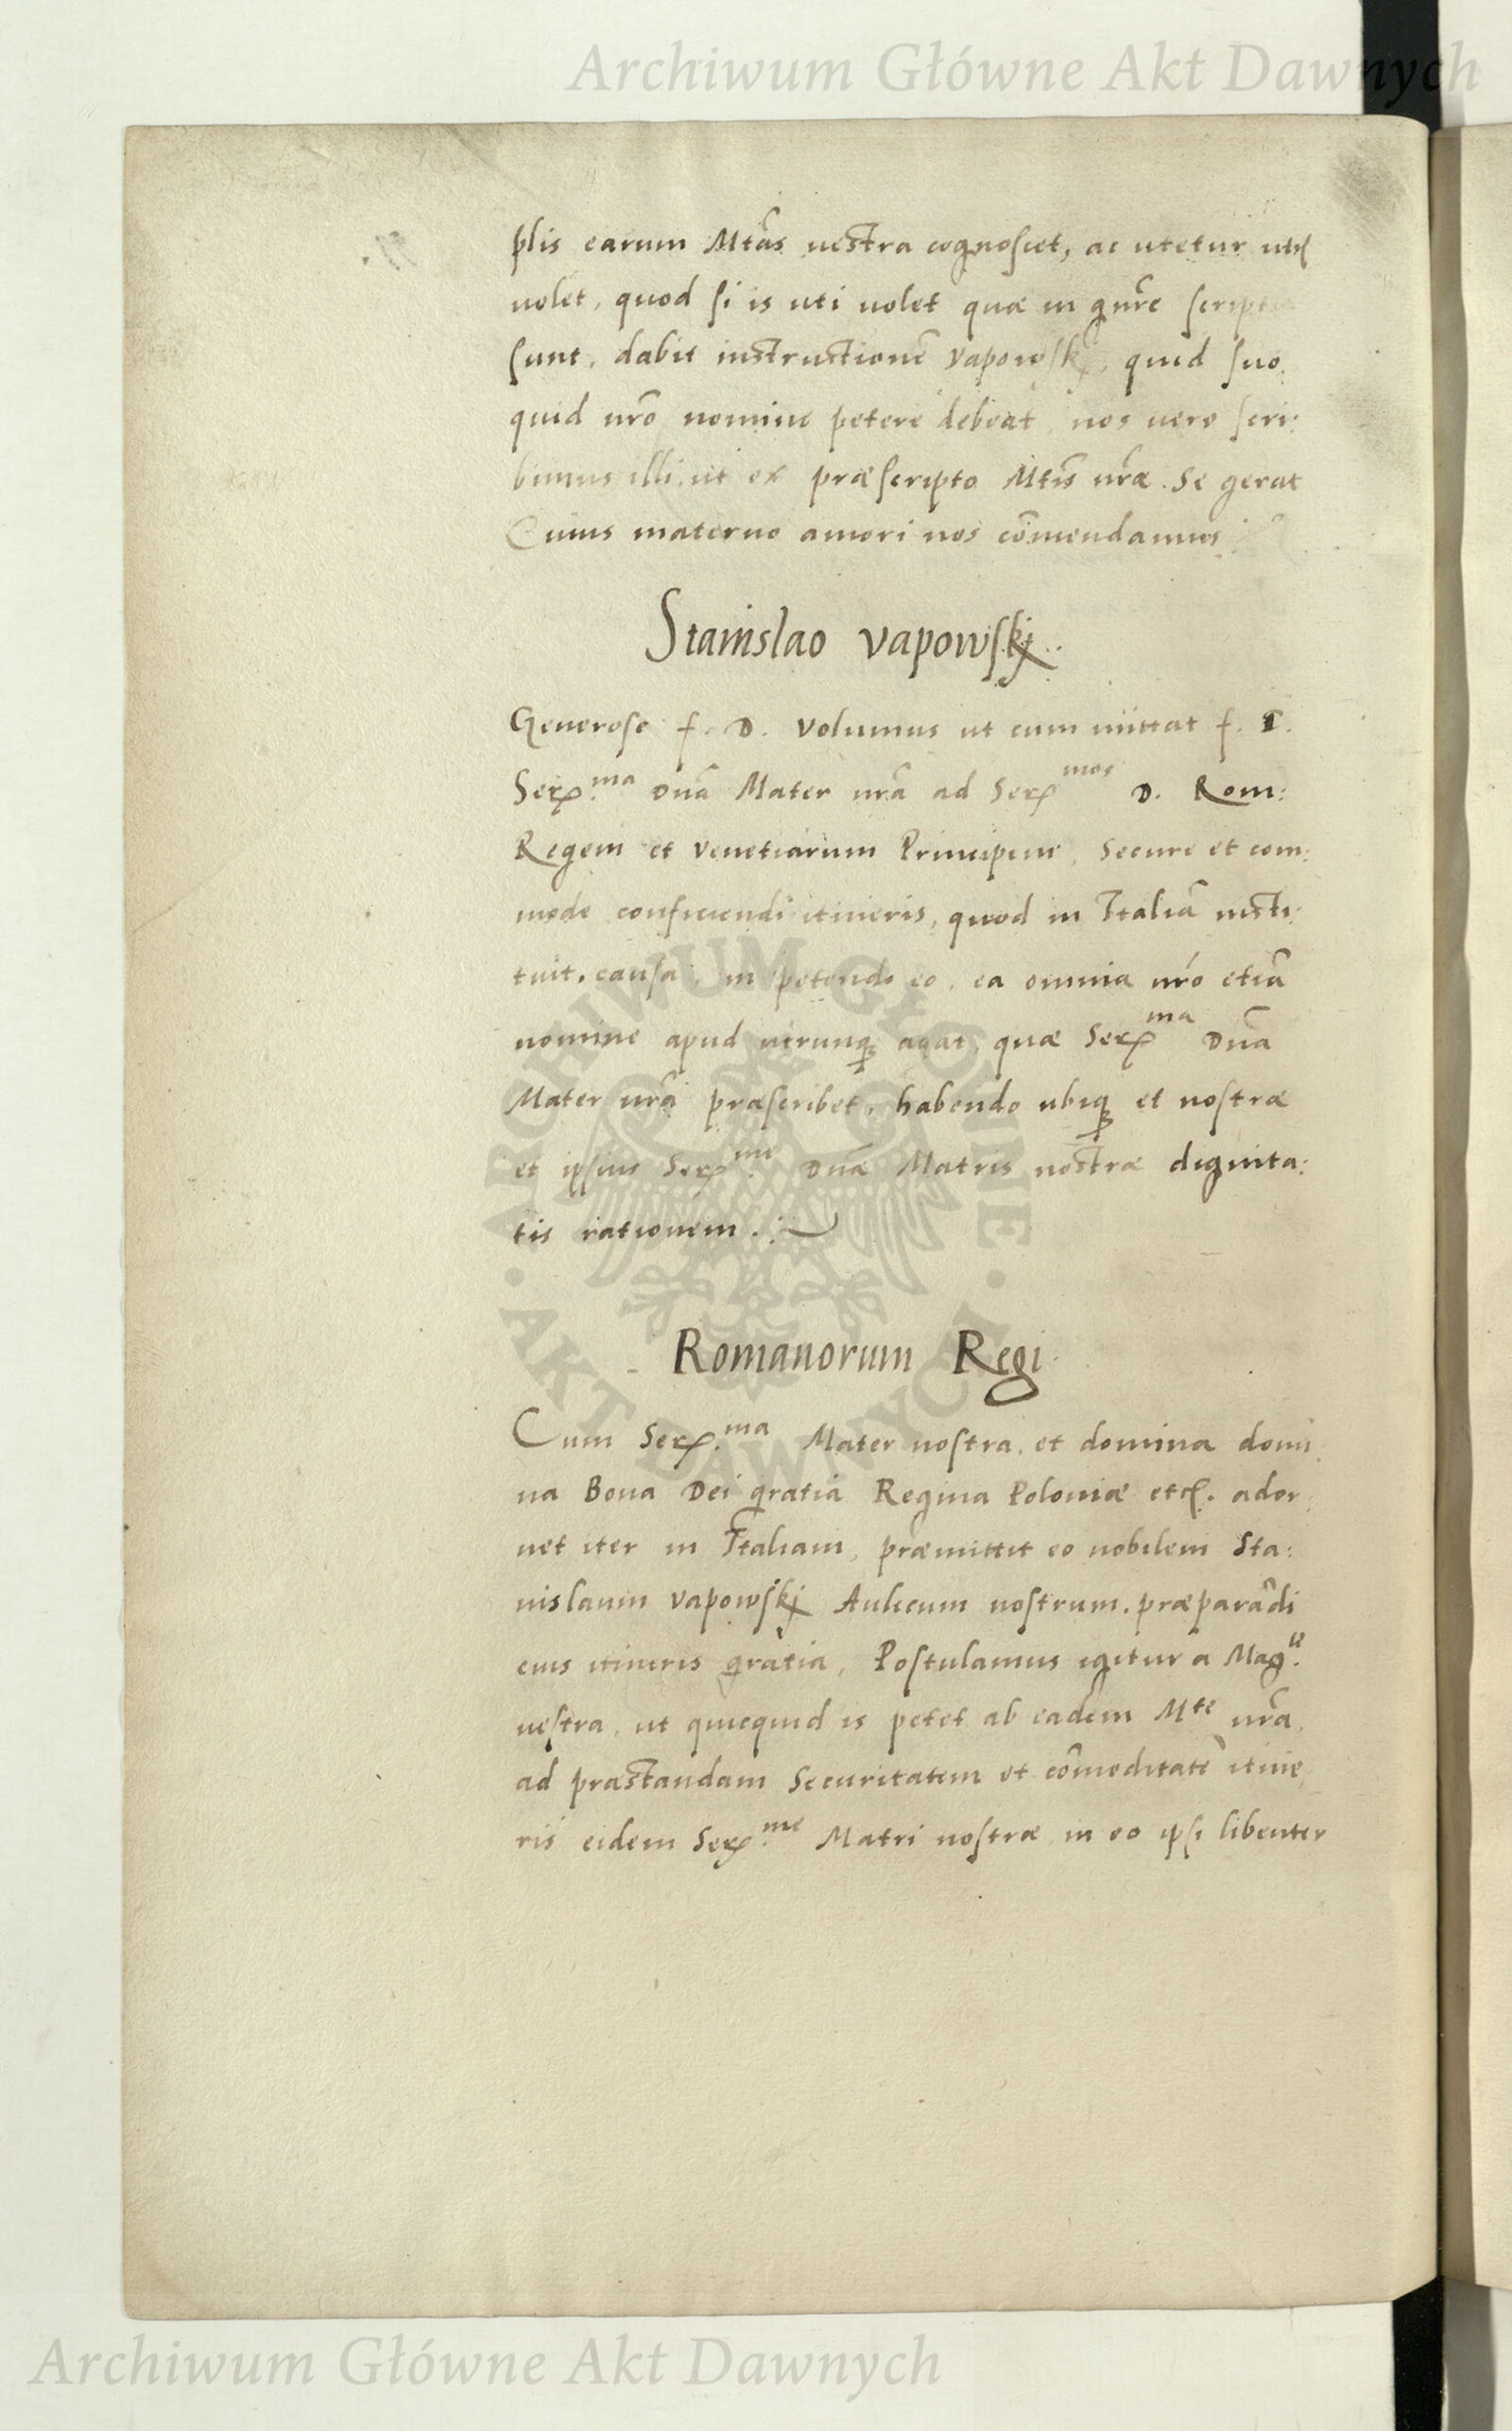 Archiwum Główne Akt Dawnych
plis earum Mtas vestra cognoscet, ac utetur
uolet, quod si is uti uolet quæ in gnre script
sunt, dabit instructionē Vapowskj, quid suo
quid nrō nomine petere debeat, nos vero scri:
bimus illi ut ex præscripto Mtis nræ. Se gerat
Cuius materno amori nos cōmendamus
Stanislao Vapowskj.
Generose f. D. Volumus ut cum mittat f. T.
Ser.ma Dnā Mater nrā ad Ser mos D. Rom:
Regem et Venetiarum Principem, Secure et com:
mode conficiendi itineris, quod in Italiā insti:
tuit, causa, in petendo eo, ea omnia nrō etiā
nomine apud utrunq agat, quæ Ser ma Dnā
Mater nrā præscribet, habendo ubiq et nostræ
et ipsius Ser me Dnæ Matris nostræ dignita:
tis rationem.
Romanorum Regi
Cum Ser.ma Mater nostra, et domina domi
na Bona Dei gratia Regina Poloniæ etc. ador
net iter in Italiam, præmittit eo nobilem Sta:
nislaum Vapowskj Aulicum nostrum, præparādi
eius itineris gratia, Postulamus igitur a
uestra, ut quicquid is petet ab eadem Mte nrā,
ad præstandam Securitatem et cōmoditatē itine
ris eidem Ser.me Matri nostræ in eo ipsi libenter
ARCHIWUM GŁÓWNE · AKT DAWNYCH ·
Archiwum Główne Akt Dawnych